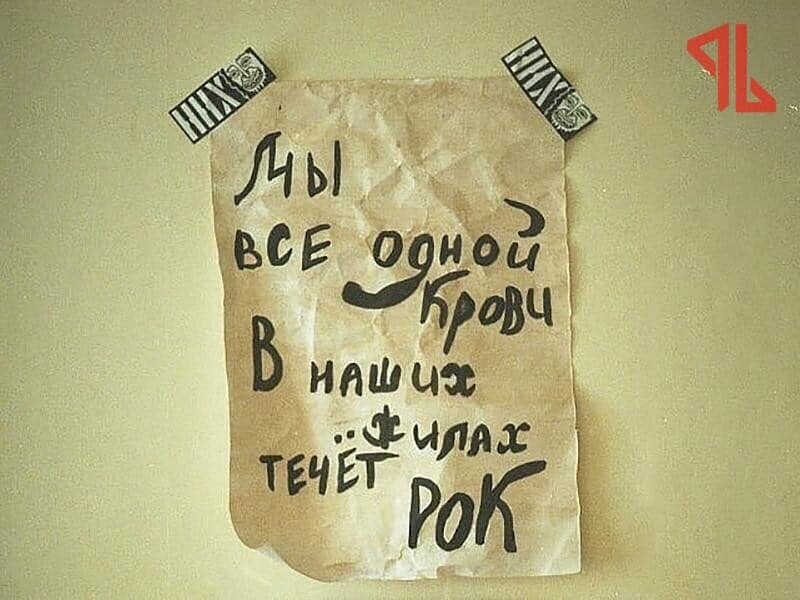 Мы
ВСЕ ОДНОЙ
КРОВИ
В НАШИХ
ЖИЛАХ
ТЕЧЁТ
РОК